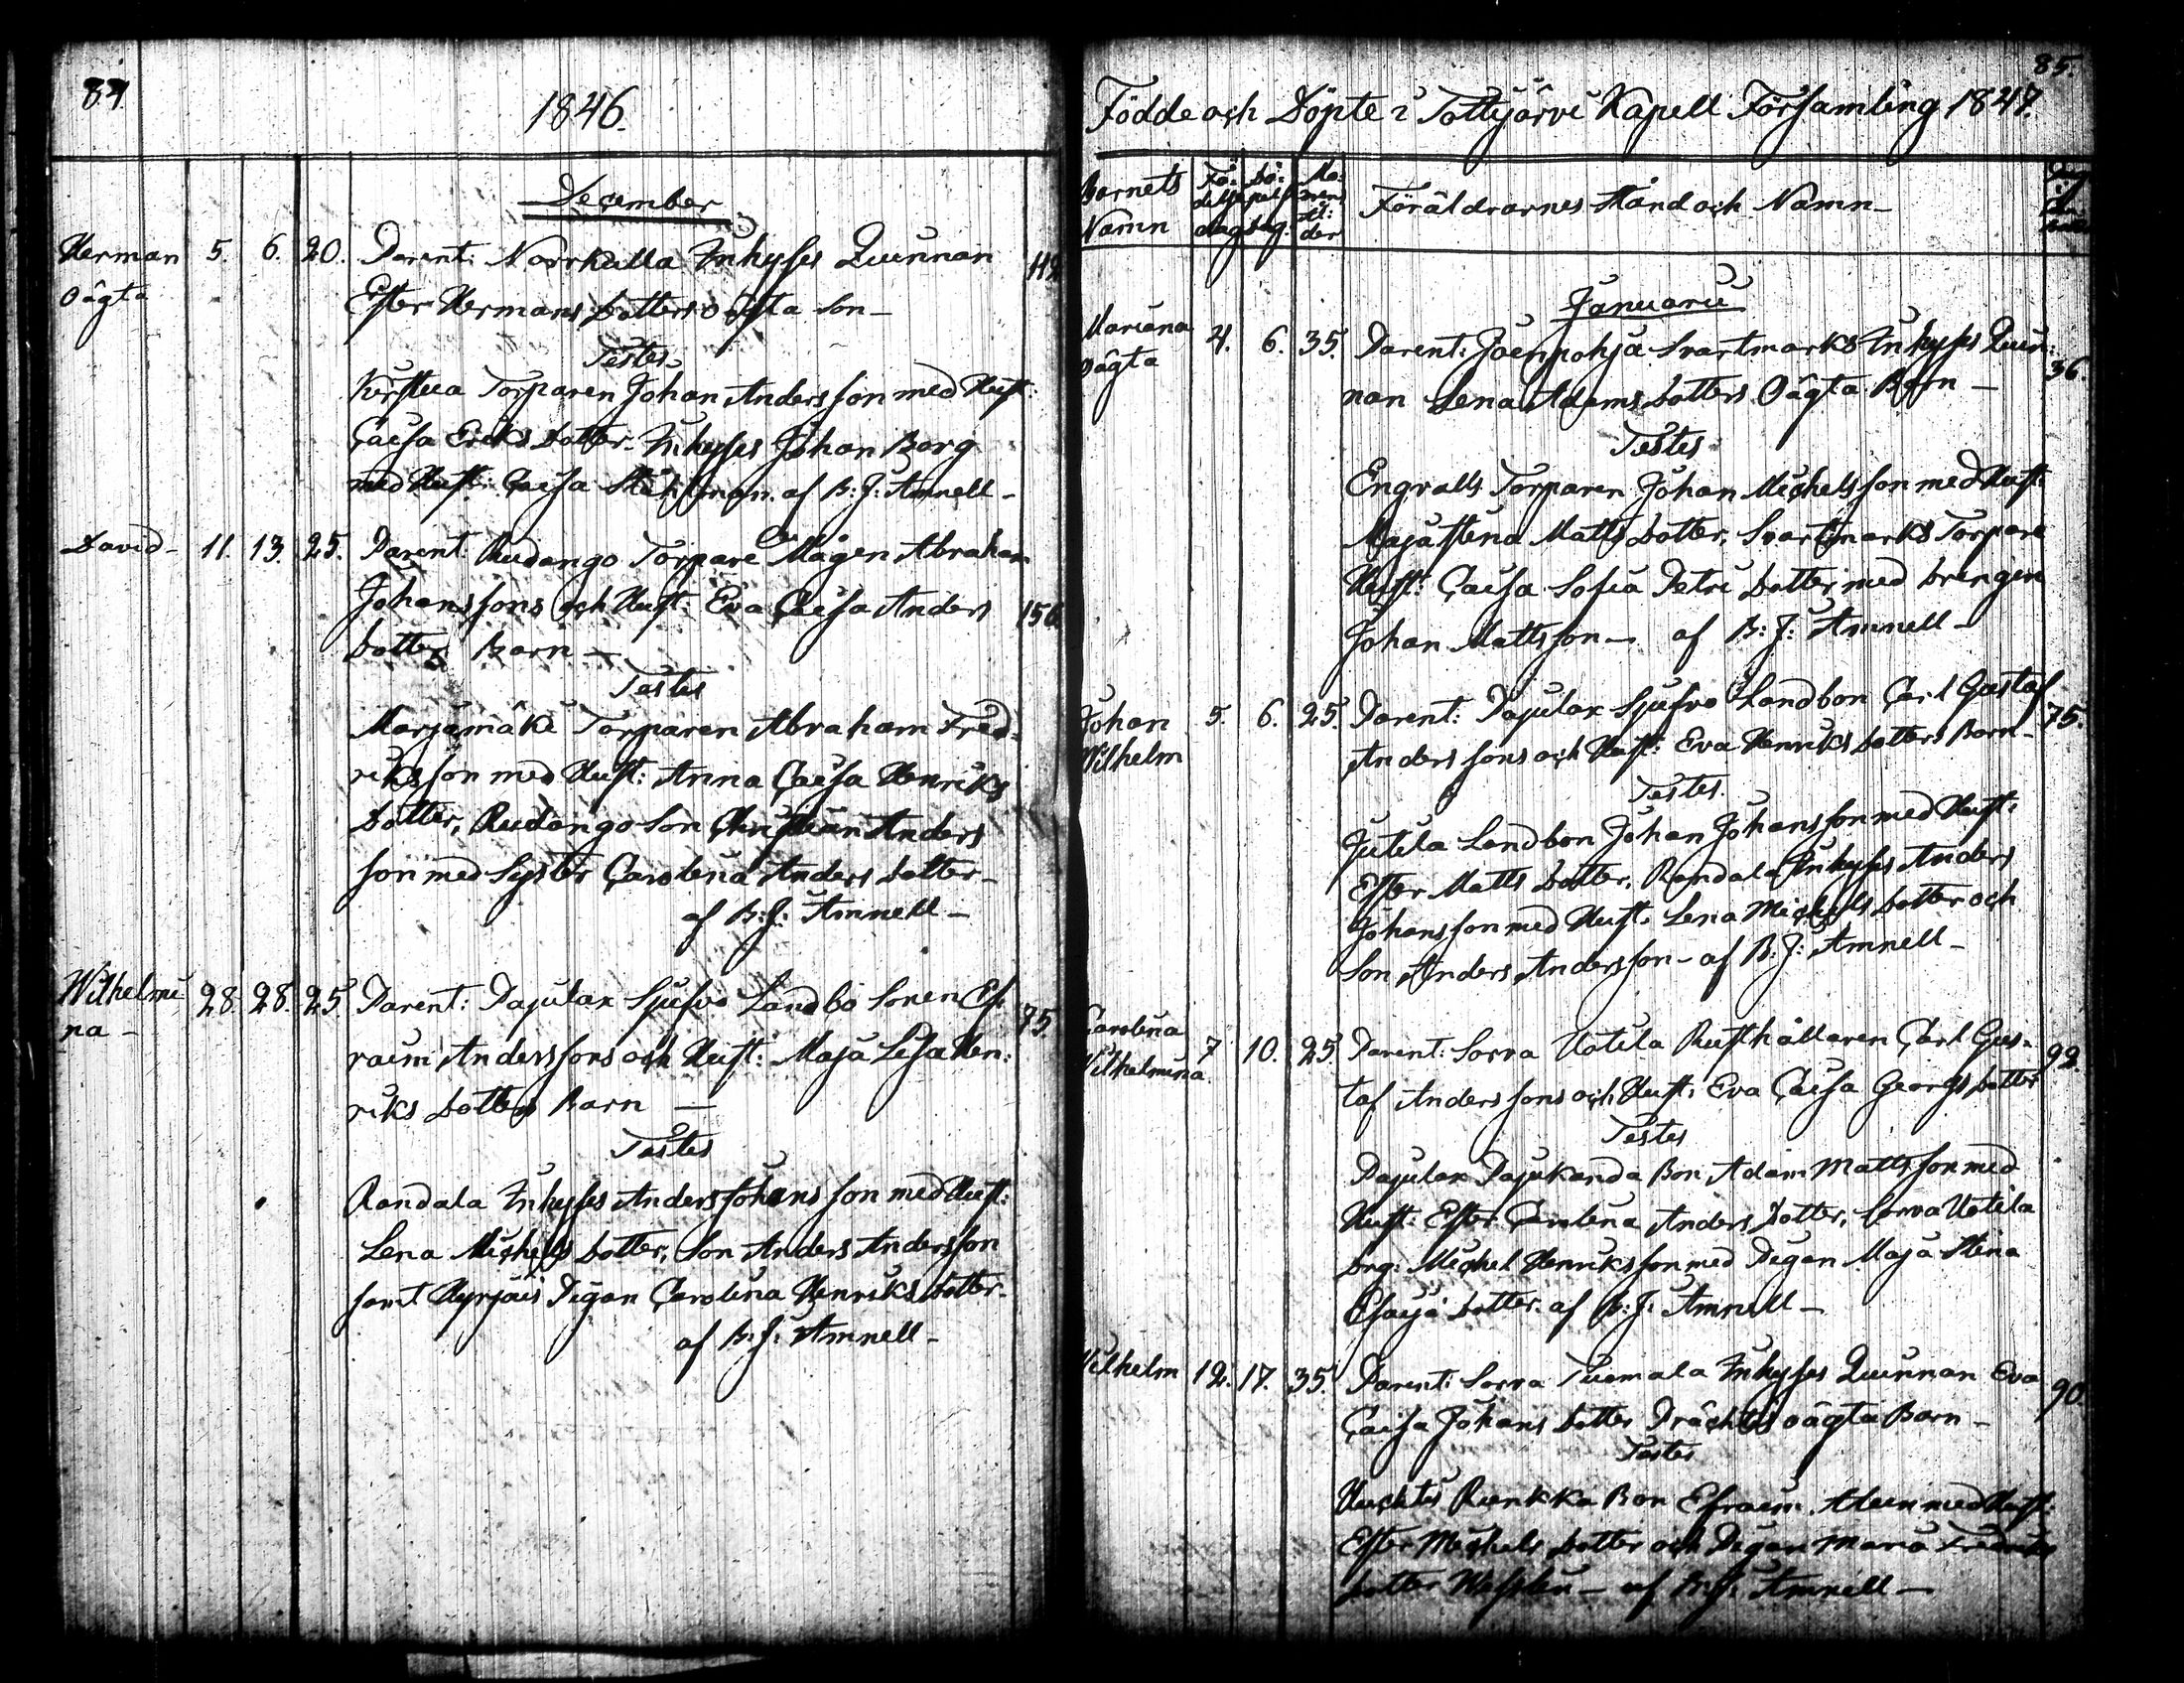 84
1846.
December
Herman 5. 6. 20. Parent: Norrkulla Inhyses Quinnan 112
oägta Ester Hermans dotters oägta Son –
Testes
Torparen Johan Andersson med Hust:
Caisa Eriks dotter. Inhyses Johan Borg
med Hust: Caisa Ståhlman. af B: J: Amnell –
David – 11. 13. 25. Parent: Rudango Torpare Mågen Abraham
Johanssons och Hust: Eva Caisa Anders 156.
dotters Barn –
Testes
Marjamäki Torparen Abraham Fred:
riksson med Hust: Anna Caisa Henriks
dotter, Rudango Son Christian Anders
son med Syster Carolina Anders dotter –
af B: J: Amnell –
Wilhelmi 28. 28. 25. Parent: Pajulax Sjufvo Landbo Sonen Ef: 75.
na – raim Anderssons och Hust: Maja Lisa Hen:
riks dotters Barn –
Testes
Randala Inhyses Anders Johansson med Hust:
Lena Michels dotter, Son Anders Andersson
samt Hyrjäis Pigan Carolina Henriks dotter.
af B: J: Amnell –
85.
Födde och Döpte i Tottijärvi Kapell Församling 1847.
Barnets Namn Födelse dag Döpelse dag Modrens Ålder Föräldrarnes Stånd och Namn –
Januarii
Mariana 4. 6. 35. Parent: Joenpohja Svartmarks Inhyses Quin: 36.
oägta nan Lena Adams dotters Oägta Barn –
Testes
Engvalls Torparen Johan Michelsson med Hust:
Maja Stina Matts dotter, Svartmarks Torpare
Hust: Caisa Sofia Petri dotter med drengen
Johan Mattsson – af B: J: Amnell –
Johan 5. 6. 25. Parent: Pajulax Sjufvo Landbon Carl Gustaf 75.
Wilhelm Anderssons och Hust: Eva Henriks dotters Barn –
Testes.
Jutila Landbon Johan Johansson med Hust:
Ester Matts dotter, Randala Inhyses Anders
Johansson med Hust: Lena Michels dotter och
Son Anders Andersson – af B: J: Amnell –
Carolina 7 10. 25. Parent: Sorva Uotila Rusthållaren Carl Gus: 92.
Wilhelmina. taf Anderssons och Hust: Eva Caisa Georgs dotter
Testes
Pajulax Pajukanda Bon Adam Mattsson med
Hust: Ester Carolina Anders dotter, Sorva Uotila
drg: Michel Henriksson med Pigan Maja Stina
Esaiæ dotter. af B: J: Amnell –
Wilhelm 12. 17. 35. Parent: Sorva Tuomala Inhyses Quinnan Eva 90
Caisa Johans dotter oägta Barn –
Testes
Huchtis Bon Efraim med Hust:
Ester Michels dotter och Pigan Maria Fredriks
dotter – af B: J: Amnell –